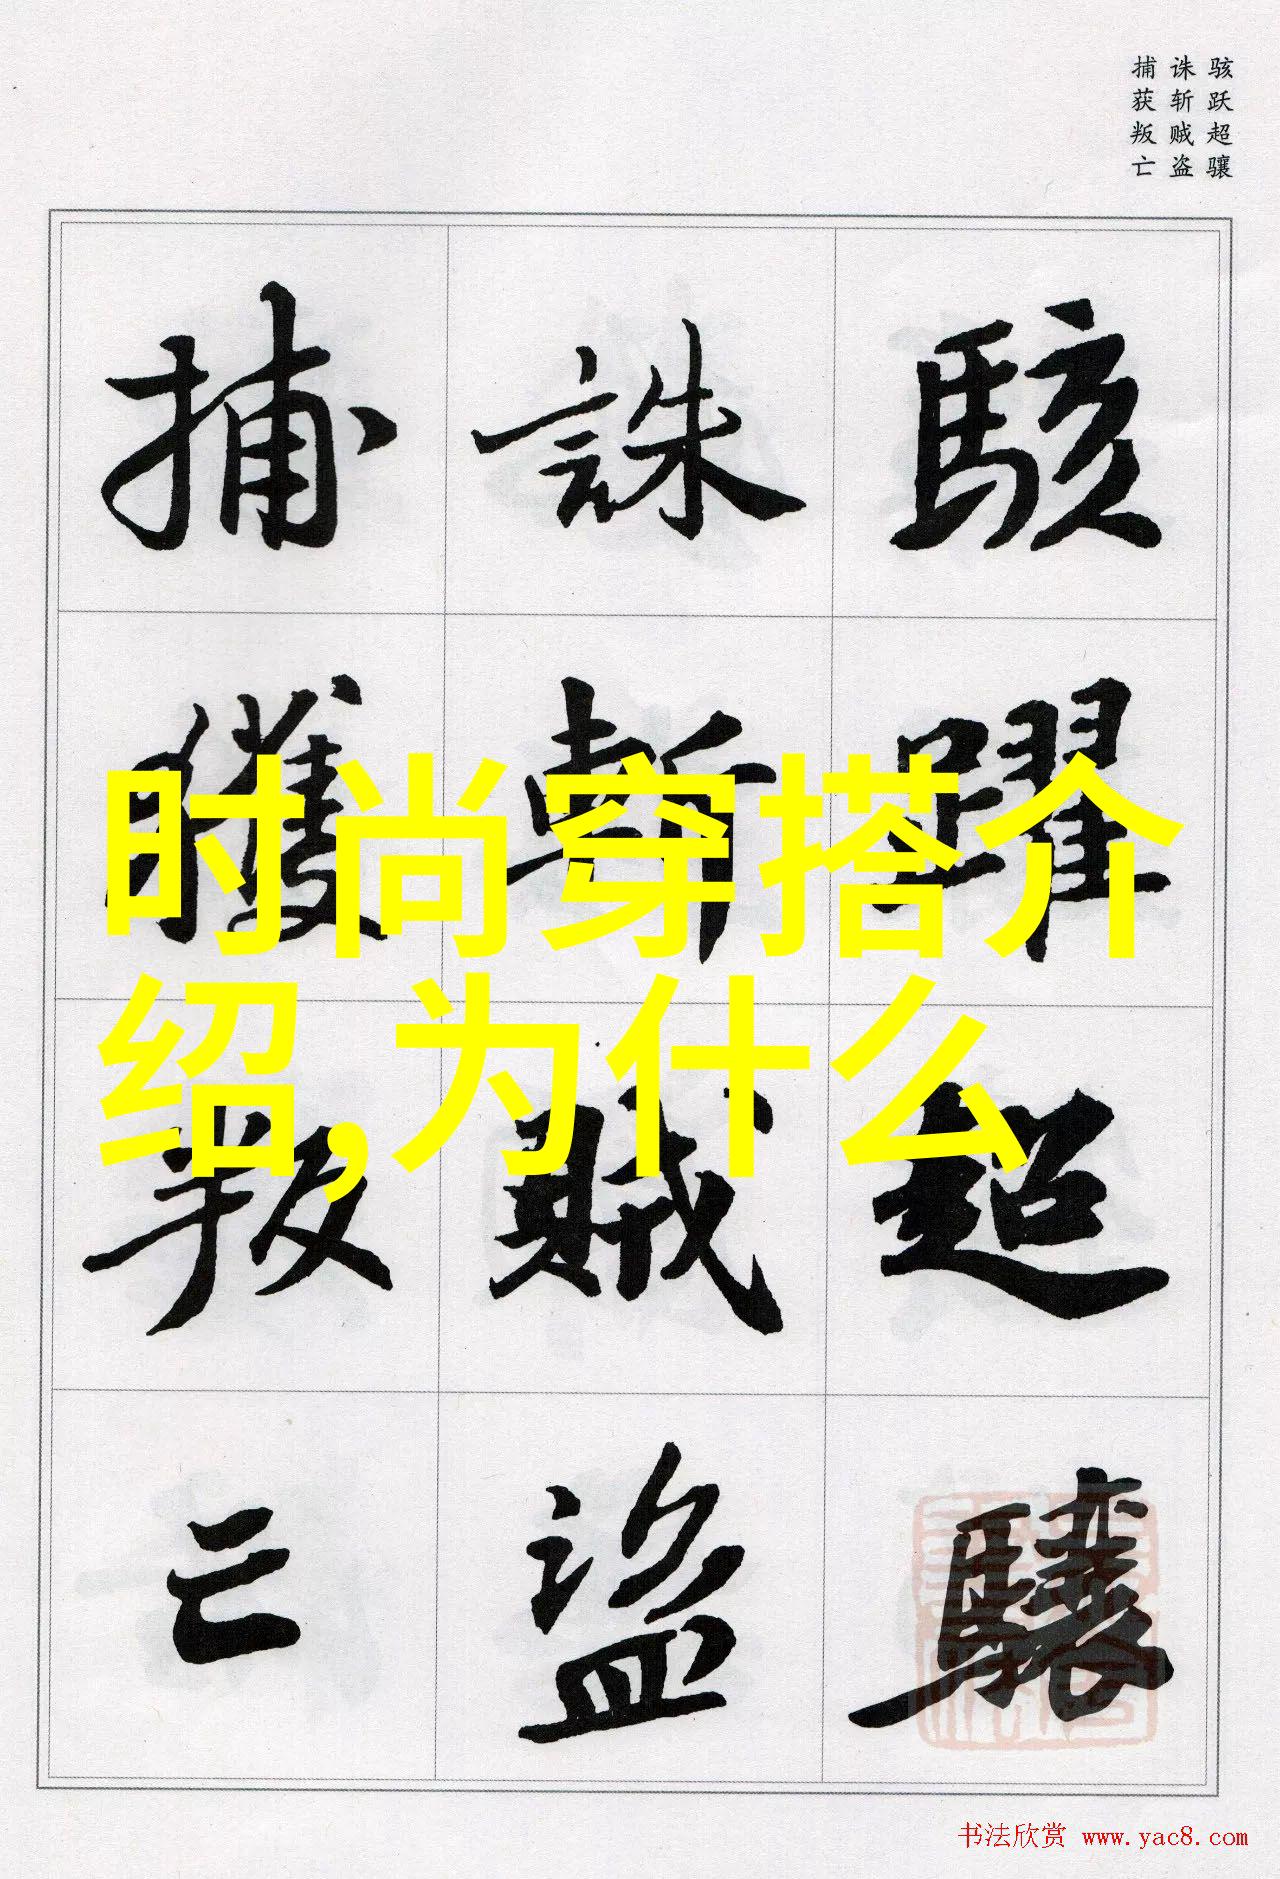 骇跃超骧
诛斩贼盗
捕获叛亡
駭躍超驤
誅斬賊盜
捕獲叛亡
时尚穿搭介
绍,为什么
书法欣赏 www.yac8.com